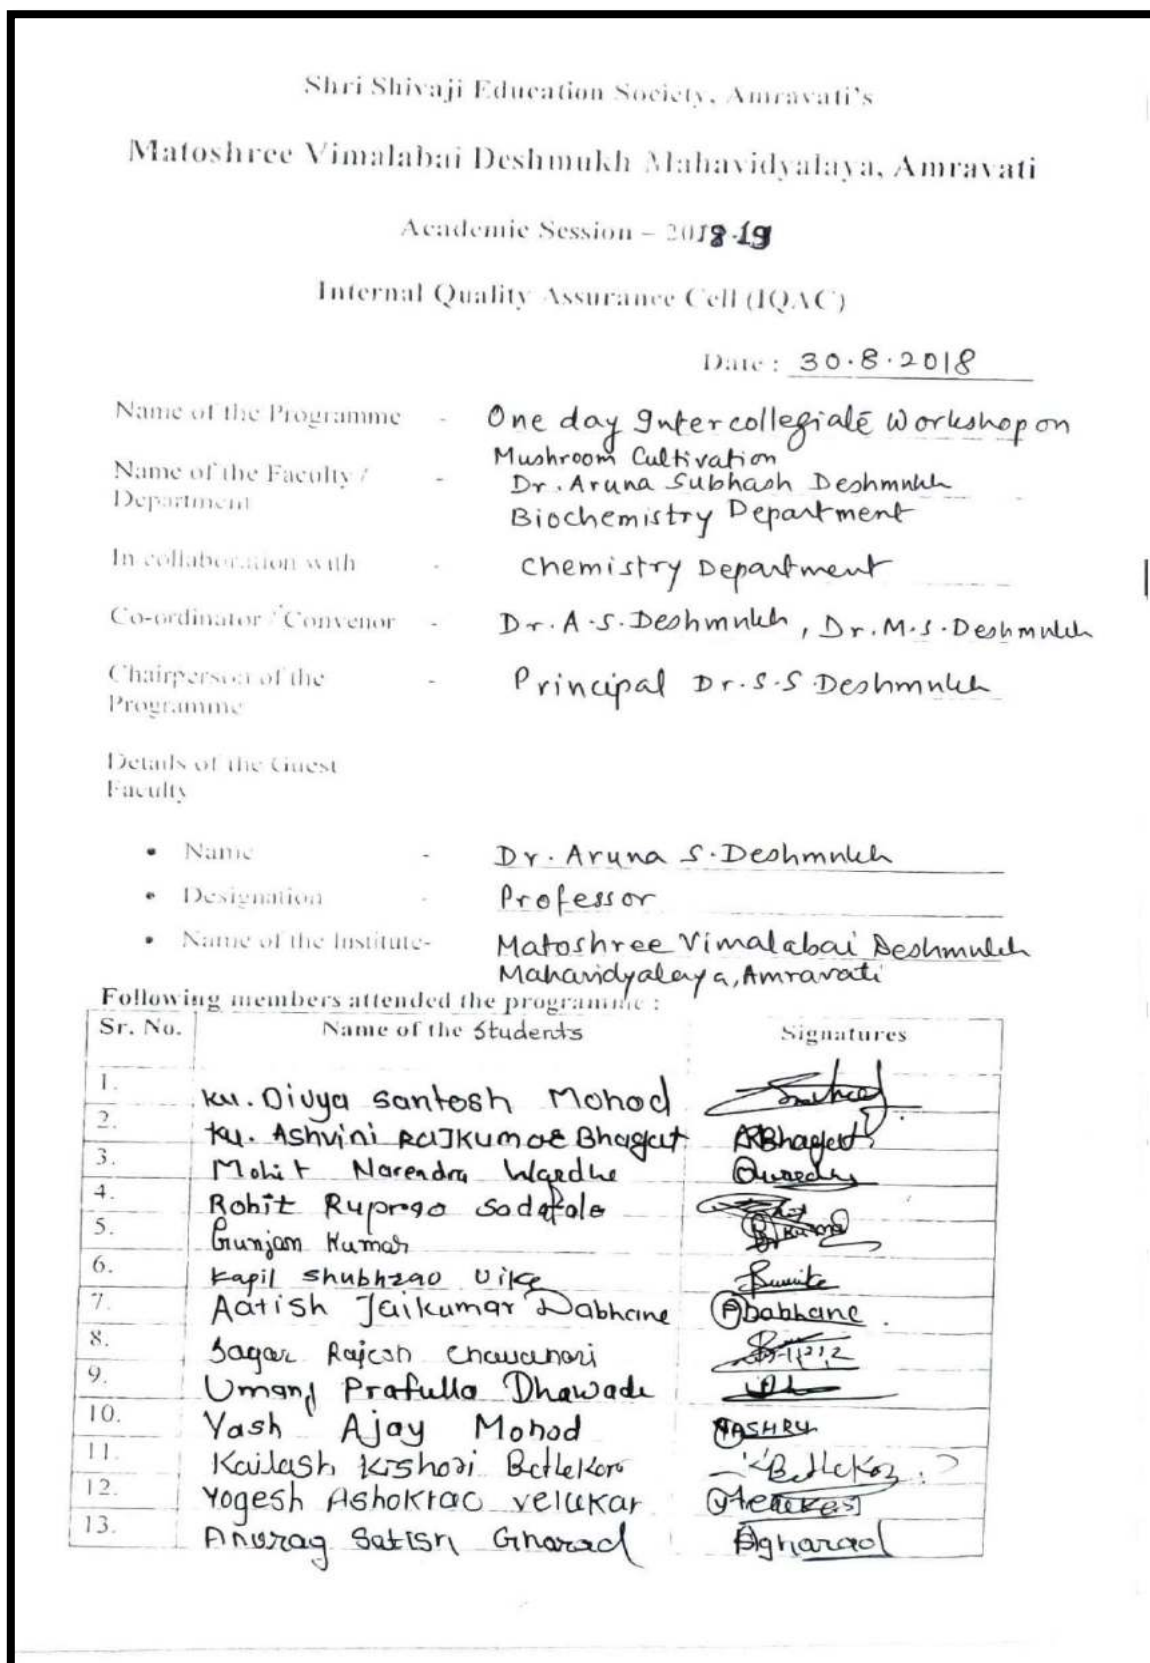 Shri Shivaji Education Society, Amravati's
Matoshree Vimalabai Deshmukh Mahavidyalaya, Amravati
Academic Session – 2018-19
Internal Quality Assurance Cell (IQAC)
Date : 30.8.2018
Name of the Programme - One day Intercollegiate Workshop on
Mushroom Cultivation
Name of the Faculty / - Dr. Aruna Subhash Deshmukh
Department Biochemistry Department
In collaboration with - Chemistry Department
Co-ordinator / Convenor - Dr. A.S. Deshmukh, Dr. M.S. Deshmukh
Chairperson of the - Principal Dr. S.S Deshmukh
Programme
Details of the Guest
Faculty
• Name - Dr. Aruna S. Deshmukh
• Designation - Professor
• Name of the Institute- Matoshree Vimalabai Deshmukh
Mahavidyalaya, Amravati
Following members attended the programme :
Sr. No. Name of the Students Signatures
1. Ku. Divya Santosh Mohod
2. Ku. Ashvini Rajkumar Bhagat ARBhagat
3. Mohit Narendra Wgedhe
4. Rohit Ruprao Sadafale
5. Gunjan Kumar
6. Kapil Shubhrao Uike
7. Aatish Jaikumar Dabhane ADabhane
8. Sagar Rajesh
9. Umang Prafulla Dhawade
10. Yash Ajay Mohod
11. Kailash Kishori
12. Yogesh Ashokrao Velukar
13. Anurag Satish Gharad Agharad